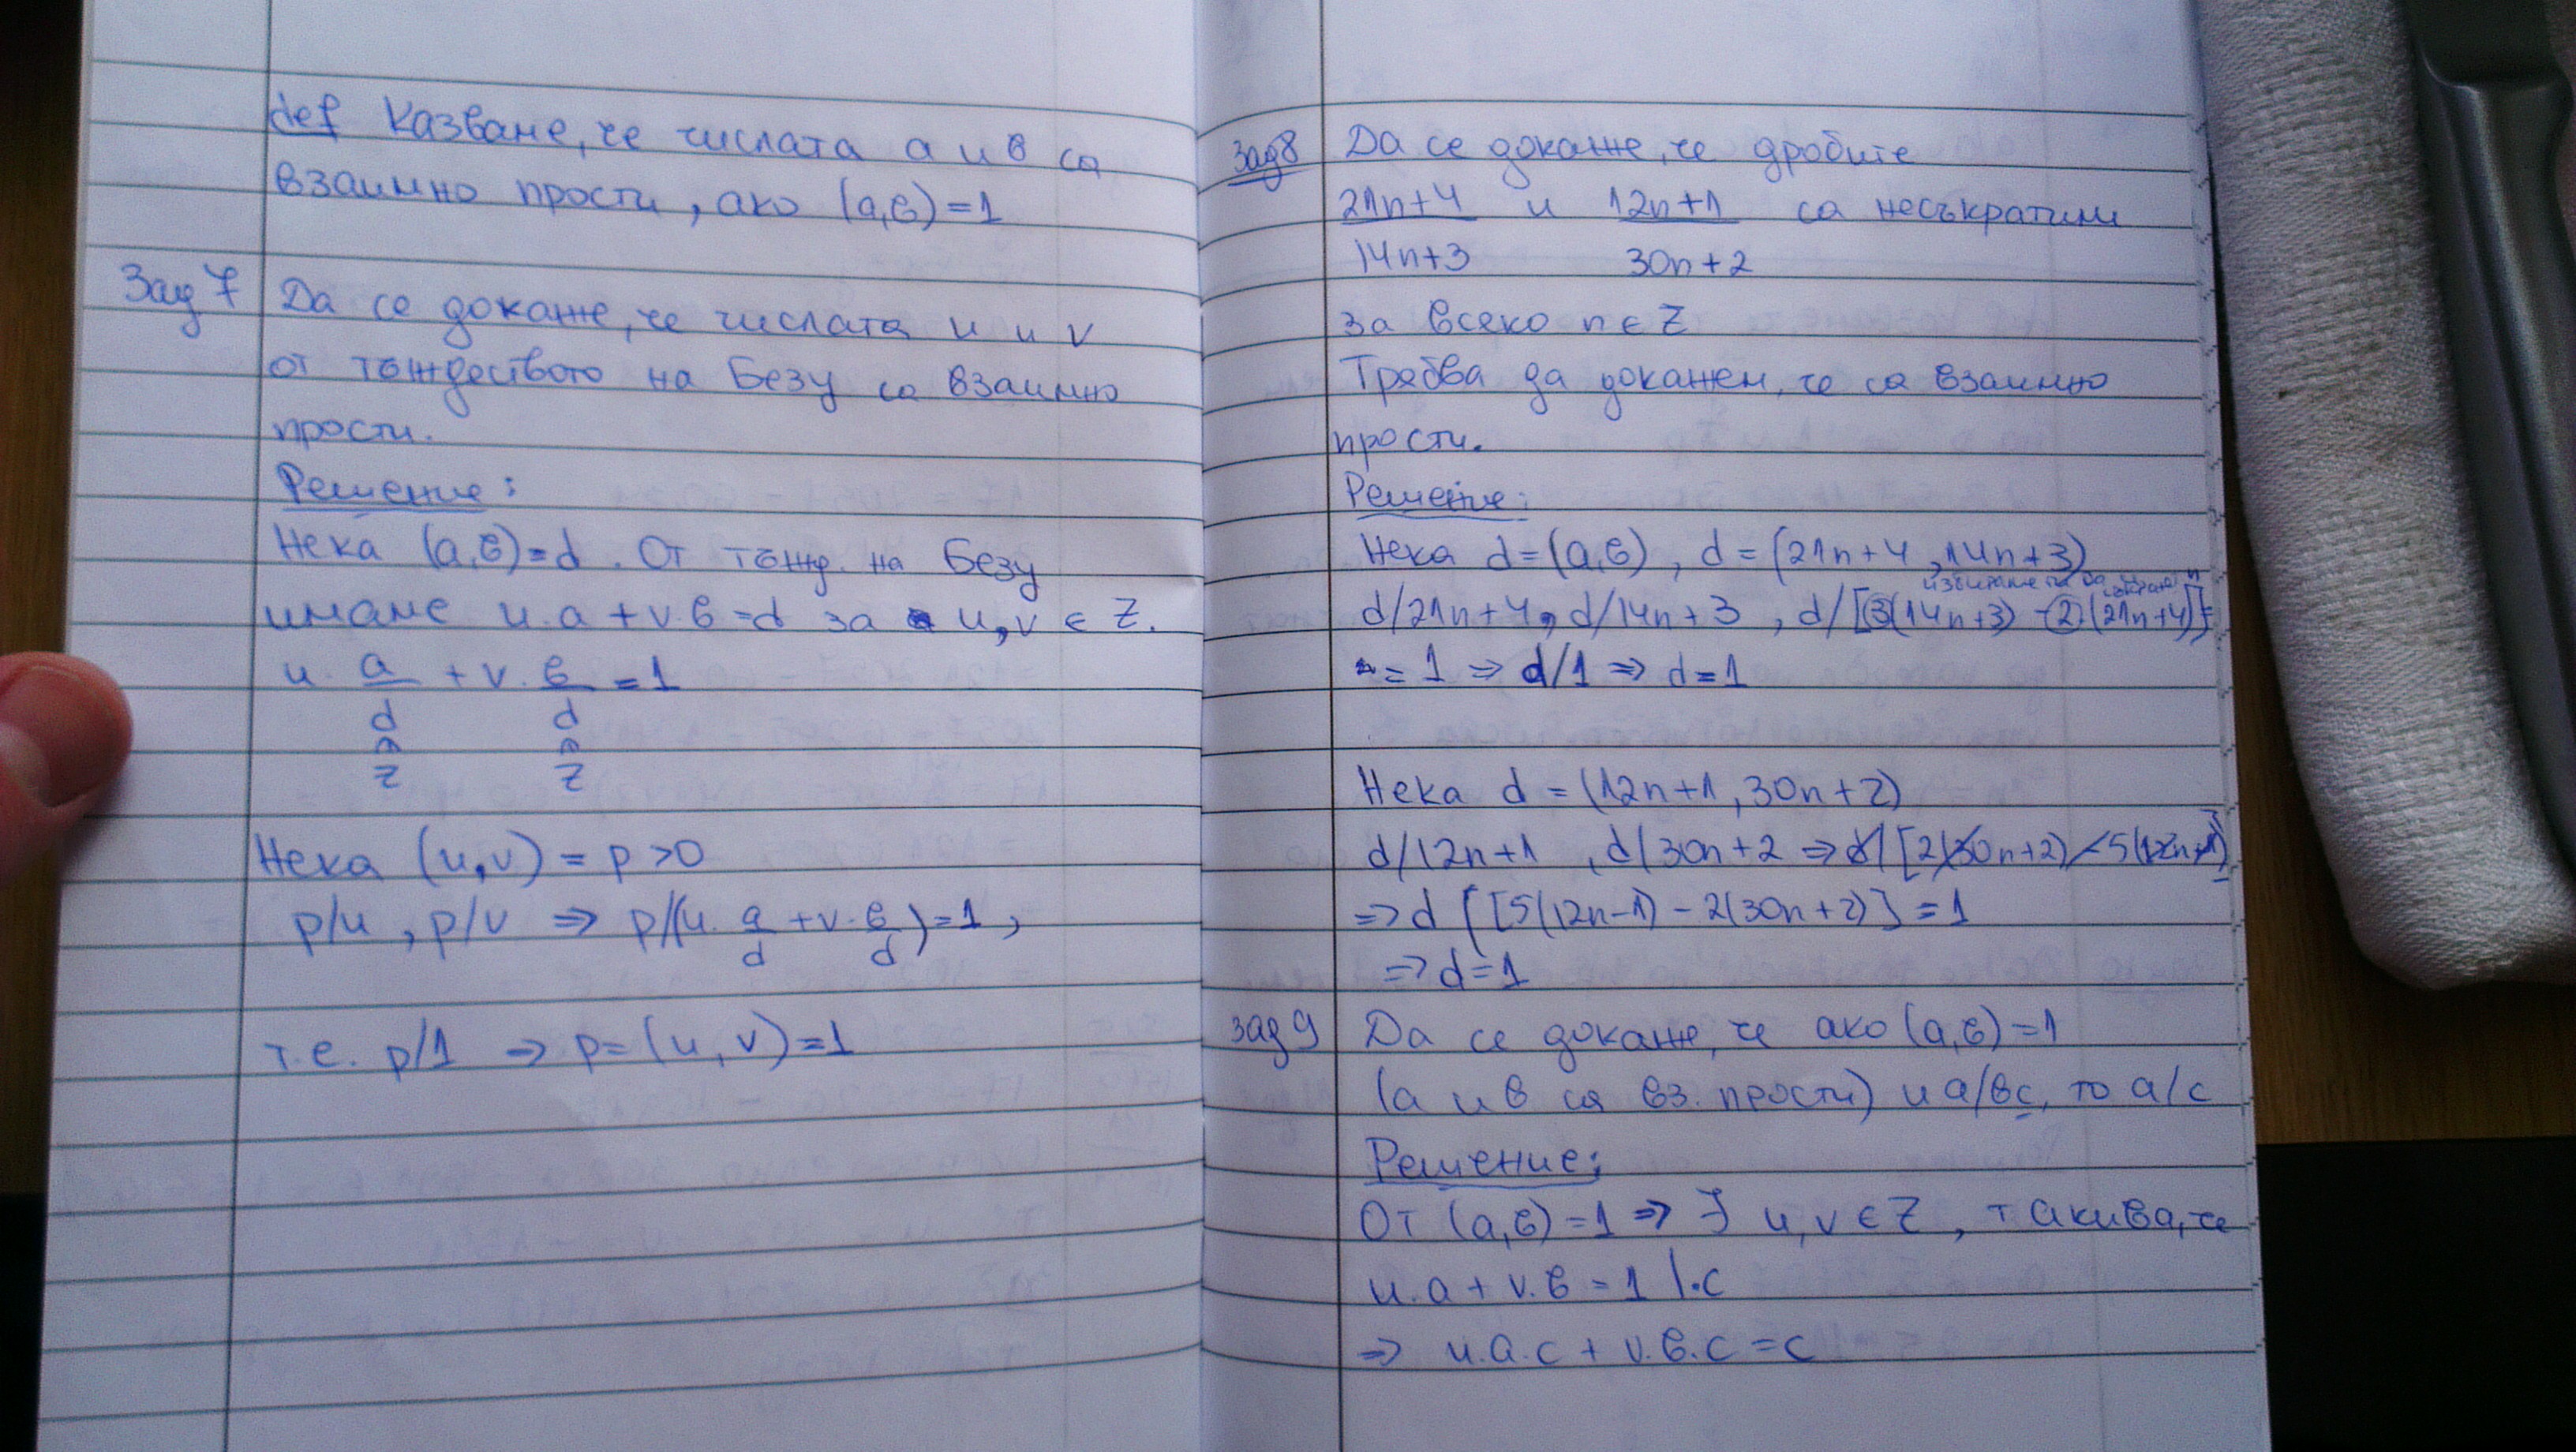 def Казваме, че числата a и b са
взаимно прости, ако (a,b)=1
Зад 7 Да се докаже, че числата u и v
от тъждеството на Безу са взаимно
прости.
Решение:
Нека (a,b)=d. От тъжд. на Безу
имаме u.a+v.b=d за u,v ∈ Z.
u. a/d + v. b/d = 1
∈ ∈
Z Z
Нека (u,v) = p >0
p/u, p/v ⇒ p/(u. a/d + v. b/d)=1,
т.е. p/1 ⇒ p=(u,v)=1
Зад 8 Да се докаже, че дробите
21n+4 и 12n+1 са несъкратими
14n+3 30n+2
за всяко n ∈ Z
Трябва да докажем, че са взаимно
прости.
Решение:
Нека d=(a,b), d=(21n+4,14n+3)
избираме ги да n
d/21n+4, d/14n+3, d/[3(14n+3) -2(21n+4)]=
= 1 ⇒ d/1 ⇒ d=1
Нека d = (12n+1,30n+2)
d/12n+1, d/30n+2 ⇒ d/[2(30n+2)-5(12n+1)]
⇒ d/[5(12n-1)-2(30n+2)]=1
⇒ d=1
зад 9 Да се докаже, че ако (a,b)=1
(a и b са вз. прости) и a/bc, то a/c
Решение:
От (a,b)=1 ⇒ ∃ u,v ∈ Z, такива, че
u.a+v.b=1 |.c
⇒ u.a.c+v.b.c=c